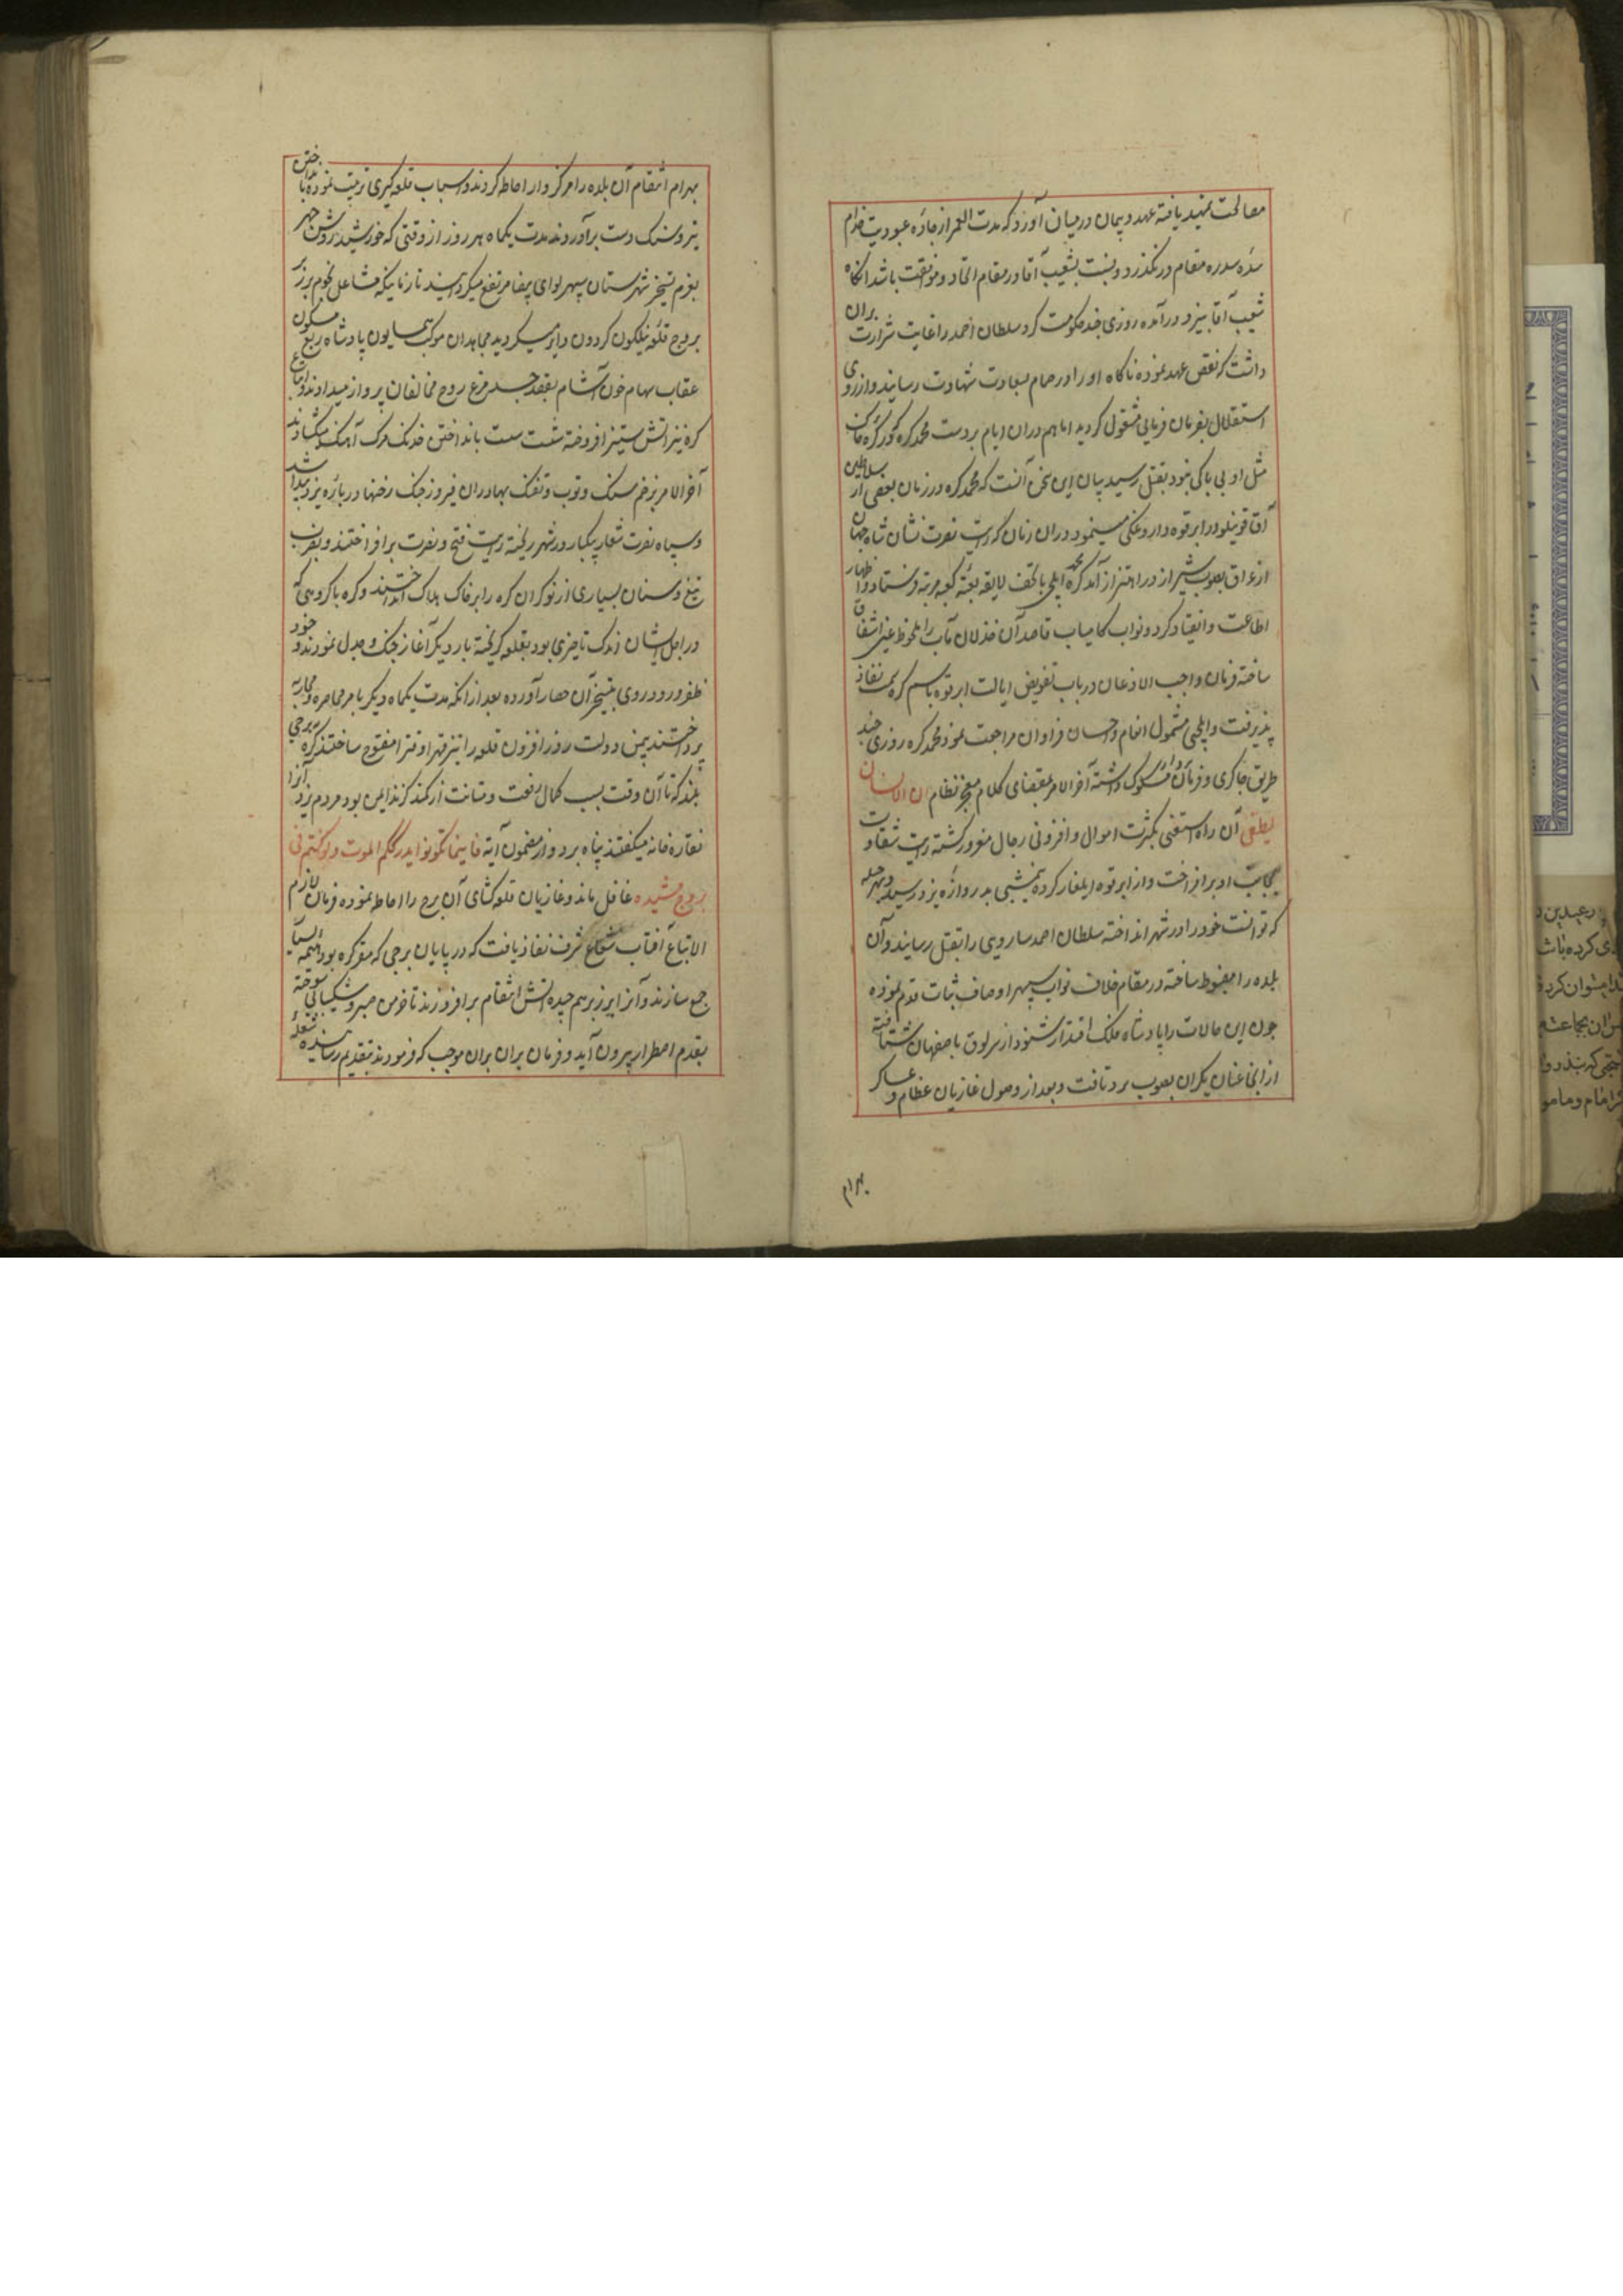 مصالحت تمهید یافته عهد و پیمان در میان آورد که مدت العمر از جاده عبودیت خدام
سده سدره مقام در نکذرد و نسبت بشعیب آقا در مقام اتحاد و موافقت باشد انکاه
شعیب آقا بیزد درآمده روزی چند حکومت کرد و سلطان احمد را غایت شرارت بران
داشت که نقض عهد نموده ناکاه او را در حمام بسعادت شهادت رسانید و از روی
استقلال بفرمان فرمایی مشغول کردید اما هم دران ایام بر دست محمد کره که
مثل او بی باکی بود بقتل رسید بیان این سخن آنست که محمد کره در زمان بعضی از سلاطین
آق قوینلو در ابرقوه داروغکی مینمود و دران زمان که رایت نصرت نشان شاه جهان
از عراق بصوب شیراز در اهتزاز آمد محمد کره ایلچی با تحف لایقه بعتبه کعبه مرتبه فرستاد و اظهار
اطاعت و انقیاد کرد و نواب کامیاب قاصد آن خذلان مآب را ملحوظ عین اشفاق
ساخته فرمان واجب الاذعان در باب تفویض ایالت ابرقوه باسم کره سمت نفاذ
پذیرفت و ایلچی مشمول انعام و احسان فراوان مراجعت نمود محمد کره روزی چند
طریق چاکری و فرمان مسلوک داشته آخر الامر بمقتضای کلام معجز نظام ان الانسان
لیطغی آن راه استغنی بکثرت اموال و افزونی رجال مغرور کشته رایت شقاوت
بجانب او برافراخت و از ابرقوه ایلغار کرده نیمشبی بدروازه یزد رسید و بهر حیله
که توانست خود را در شهر انداخته سلطان احمد ساروی را بقتل رسانید و آن
بلده را مضبوط ساخته در مقام خلاف نواب سپهر اوصاف ثبات قدم نموده
چون این حالات را پادشاه ملک اقتدار شنود از سرلوق باصفهان شتافته
از انجا عنان یکران بصوب یزد تافت و بعد از وصول غازیان عظام و عساکر
بهرام
بهرام انتقام آن بلده را مرکز وار احاطه کردند و اسباب قلعه کیری ترتیب نموده با نداختن
تیر و سنک دست برآوردند و مدت یکماه هر روز از وقتی که خورشید روشن چهر
بعزم تسخیر شهرستان سپهر لوای بیضا مرتفع میکردانید تا زمانیکه مشاعل نجوم بر زبر
بروج قلعه نیلکون کردون دایر میکردید مجاهدان موکب همایون پادشاه ربع مسکون
عقاب سهام خون آشام بقصد مرغ روح مخالفان پرواز میدادند و اتباع
کره نیز آتش ستیز افروخته شست بانداختن خدنک مرک آهنک میکشادند
آخر الامر بزخم سنک و توپ و تفنک بهادران فیروز جنک رخنها در باره یزد پیدا شد
و سپاه نصرت شعار بیکبار در شهر ریخته رایت فتح و نصرت برافراختند و بضرب
تیغ و سنان بسیاری از نوکران کره را بر خاک هلاک انداختند و کره با کروهی که
در اجل ایشان اندک تاخیری بود بقلعه کریخته بار دیکر آغاز جنک و جدل نمودند و خود
ظفر ورود روی بتسخیر آن حصار آورده بعد از انکه مدت یکماه دیکر بامر محاصره و محاربه
پرداختند بیمن دولت روز افزون قلعه را نیز قهرا و قسرا مفتوح ساختند کره ببرجی
بلند که تا آن وقت بسبب کمال رفعت و متانت از کمند کزند ایمن بود و مردم یزد آنرا
نقاره خانه میکفتند پناه برد و از مضمون آیه فاینما تکونوا یدرککم الموت و لو کنتم فی
بروج مشیده غافل ماند و غازیان قلعه کشای آن برج را احاطه نموده فرمان لازم
الاتباع آفتاب شعاع شرف نفاذ یافت که در پایان برجی که مقر کره بود هیمه
جمع سازند و آنرا بر زبر هم چیده آتش انتقام برافروزند تا خرمن صبر و شکیبائی سوخته
بقدم اضطرار بیرون آید و فرمان بران بران موجب که فرمودند بتقدیم رسانیده شعله